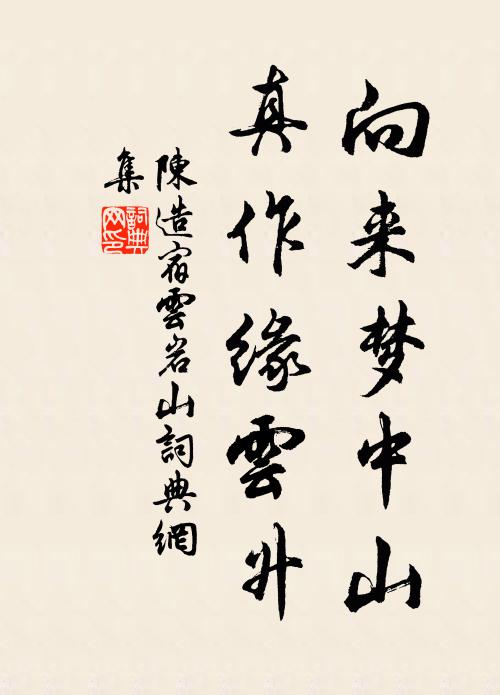 向来梦中山
真作缘雲升
陳造宿雲岩山詞典網
集
詞典
网印